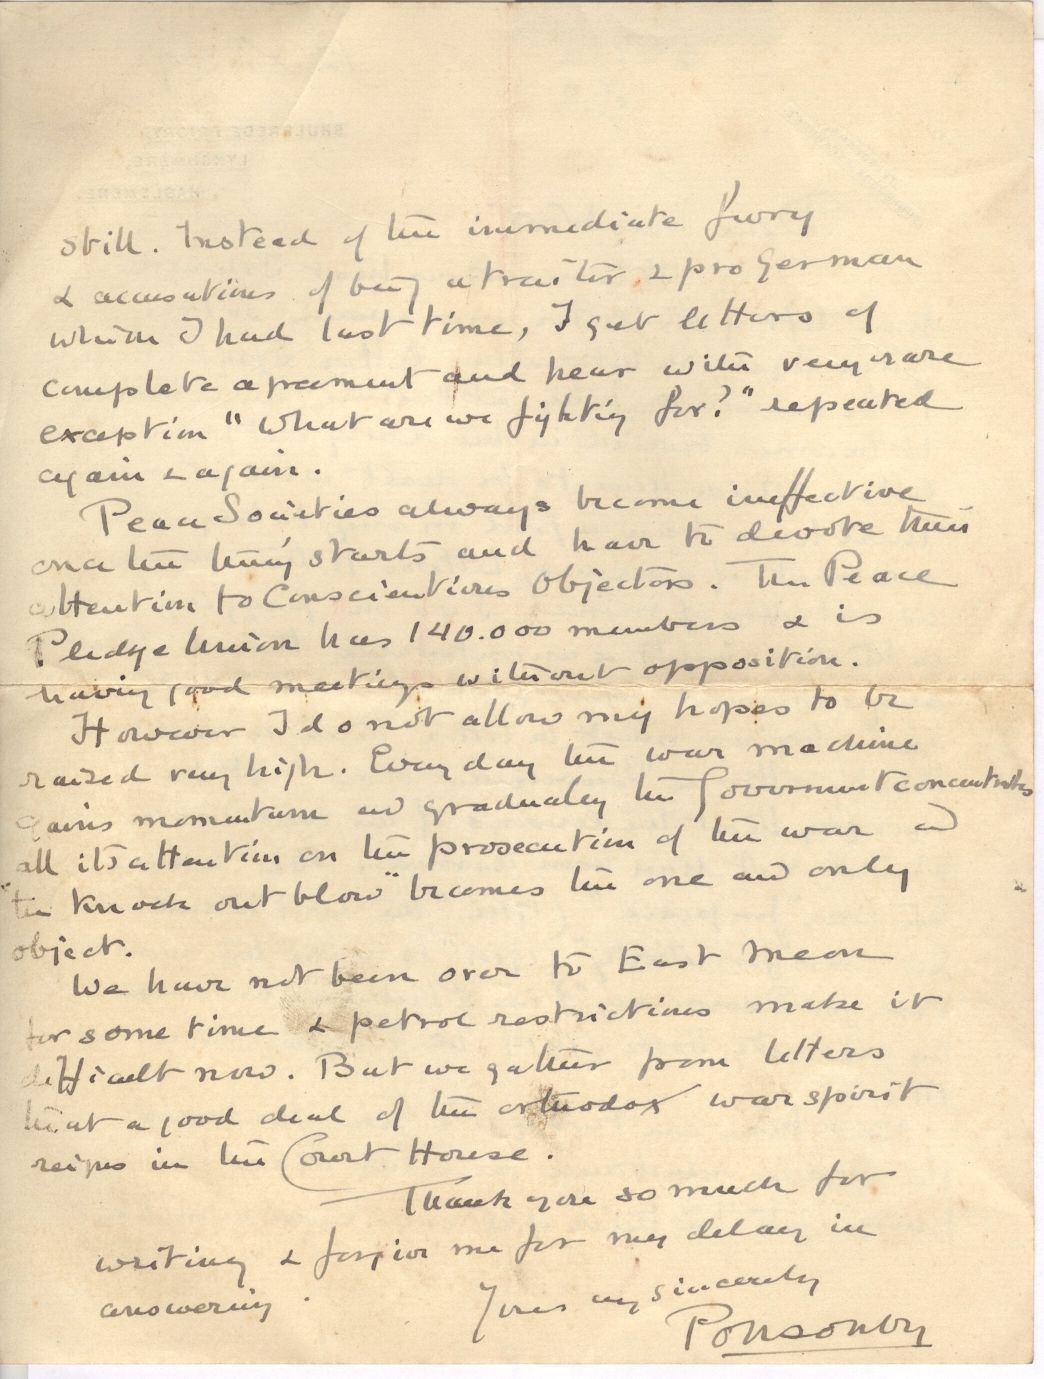 SHULBREDE PRIORY,
LYNCHMERE,
HASLEMERE.
still. Instead of the immediate fury
& accusations of being a traitor & pro German
which I had last time, I get letters of
complete agreement and hear with very rare
exception "What are we fighting for?" repeated
again & again.
Peace Societies always become ineffective
once the thing starts and have to devote their
attention to Conscientious Objectors. The Peace
Pledge Union has 140.000 members & is
having good meetings without opposition.
However I do not allow my hopes to be
raised very high. Every day the war machine
gains momentum and gradually the Government concentrates
all its attention on the prosecution of the war and
"the knock out blow" becomes the one and only
object.
We have not been over to East Meon
for some time & petrol restrictions make it
difficult now. But we gather from letters
that a good deal of the orthodox war spirit
reigns in the Court House.
Thank you so much for
writing & forgive me for my delay in
answering.
Yours very sincerely
Ponsonby